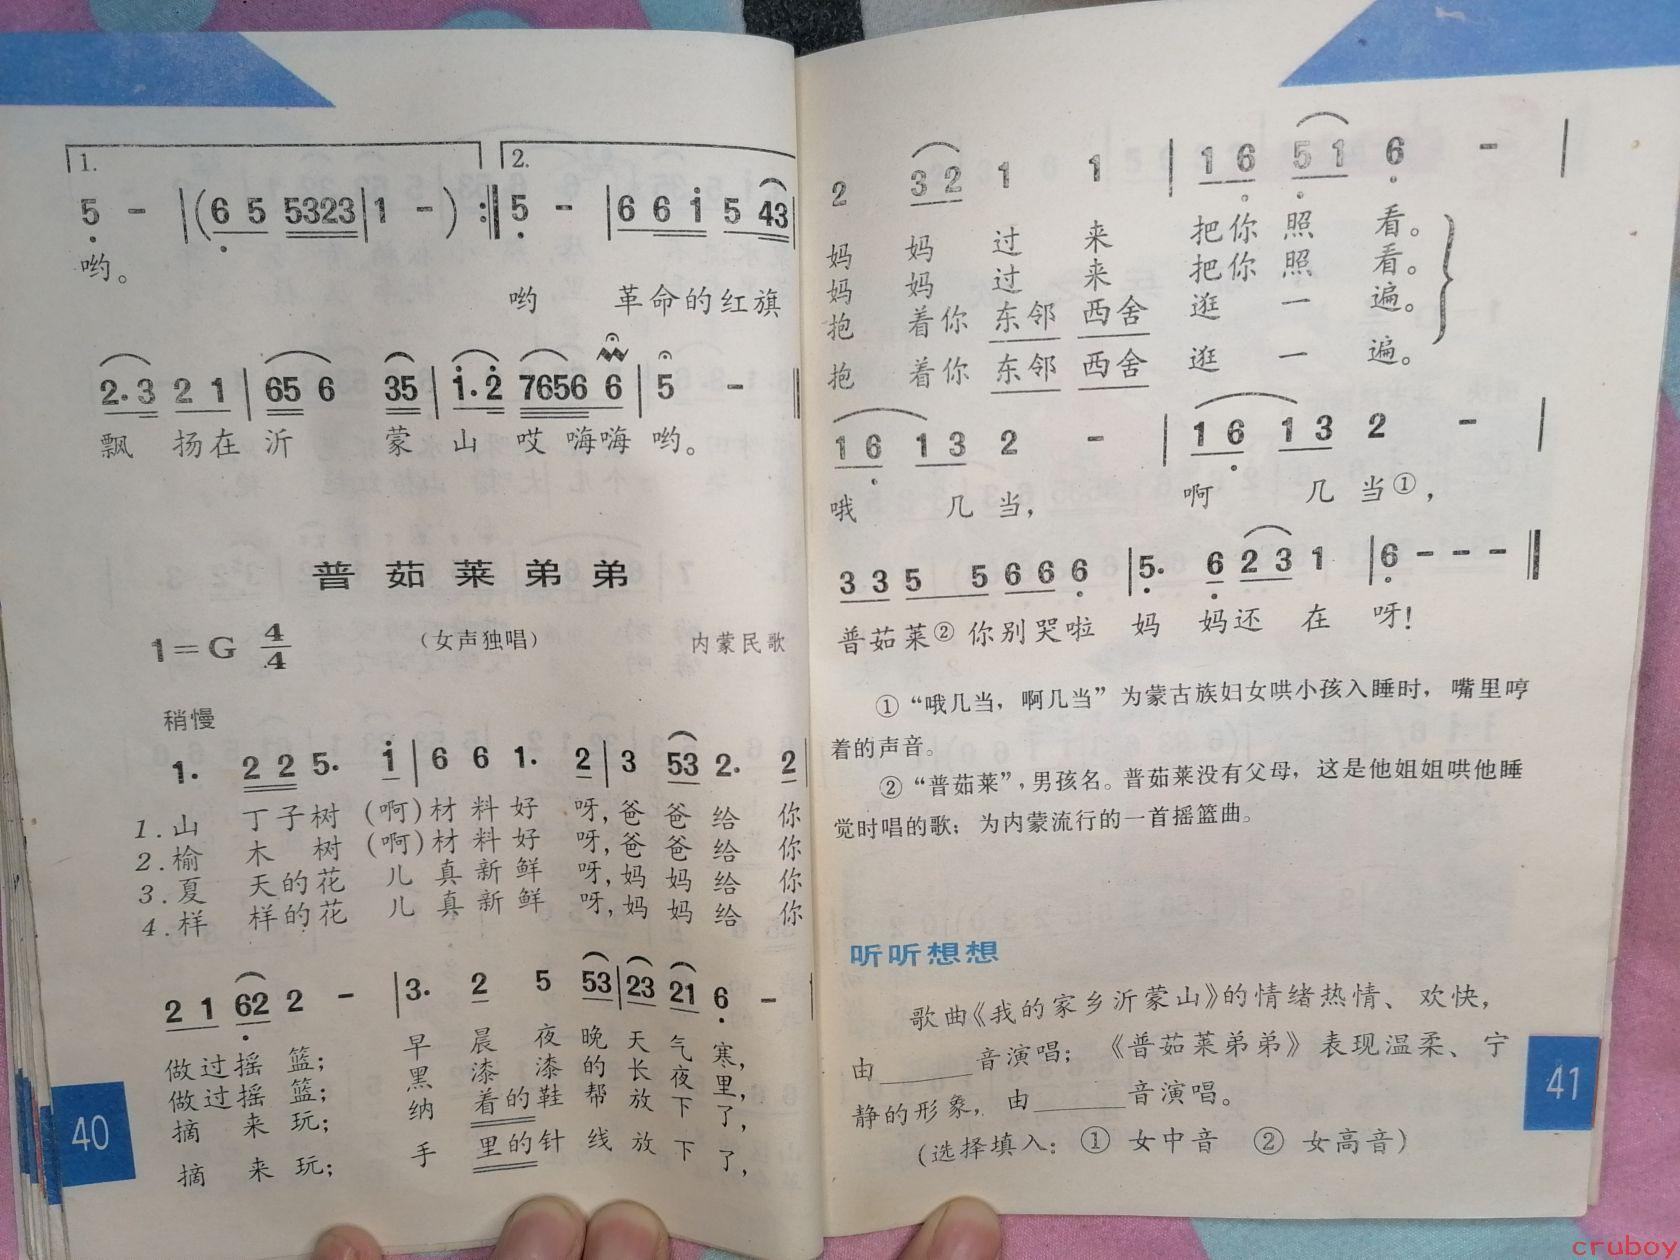 1. 2.
5 - |(6 5 5323|1 -) :‖5 - |6 6 i 5 43|
哟。
哟 革命的红旗
2·3 2 1 |65 6 35 |i·2 7656 6 |5 - ‖
飘 扬在沂 蒙 山 哎 嗨嗨 哟。
普茹莱弟弟
1=G 4/4 (女声独唱) 内蒙民歌
稍慢
1· 2 2 5· i |6 6 1· 2 |3 53 2· 2
1.山 丁子树 (啊)材料好 呀,爸 爸 给 你
2.榆 木 树 (啊)材料好 呀,爸 爸 给 你
3.夏 天的花 儿 真新鲜 呀,妈 妈 给 你
4.样 样的花 儿 真新鲜 呀,妈 妈 给 你
2 1 62 2 - |3· 2 5 53|23 21 6 - |
做过摇 篮; 早 晨 夜 晚 天 气 寒,
做过摇 篮; 黑 漆 漆 的 长 夜 里,
摘 来 玩; 纳 着的鞋 帮 放 下 了,
摘 来 玩; 手 里的针 线 放 下 了,
40
2 32 1 1 |1 6 5 1 6 - |
妈 妈 过 来 把你 照 看。
妈 妈 过 来 把你 照 看。
抱 着你 东邻 西舍 逛 一 遍。
抱 着你 东邻 西舍 逛 一 遍。
1 6 1 3 2 - |1 6 1 3 2 - |
哦 几 当, 啊 几 当①,
3 3 5 5 6 6 6 |5· 6 2 3 1 |6 - - - ‖
普茹莱② 你别哭啦 妈 妈还 在 呀!
①“哦几当,啊几当”为蒙古族妇女哄小孩入睡时,嘴里哼
着的声音。
②“普茹莱”,男孩名。普茹莱没有父母,这是他姐姐哄他睡
觉时唱的歌;为内蒙流行的一首摇篮曲。
听听想想
歌曲《我的家乡沂蒙山》的情绪热情、欢快,
由______音演唱;《普茹莱弟弟》表现温柔、宁
静的形象,由______音演唱。
(选择填入:① 女中音 ② 女高音)
41
cruboy